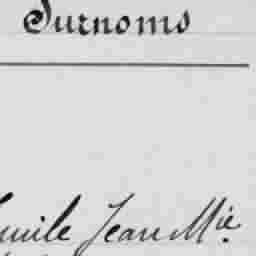 Surnoms
Emile Jean Mie.